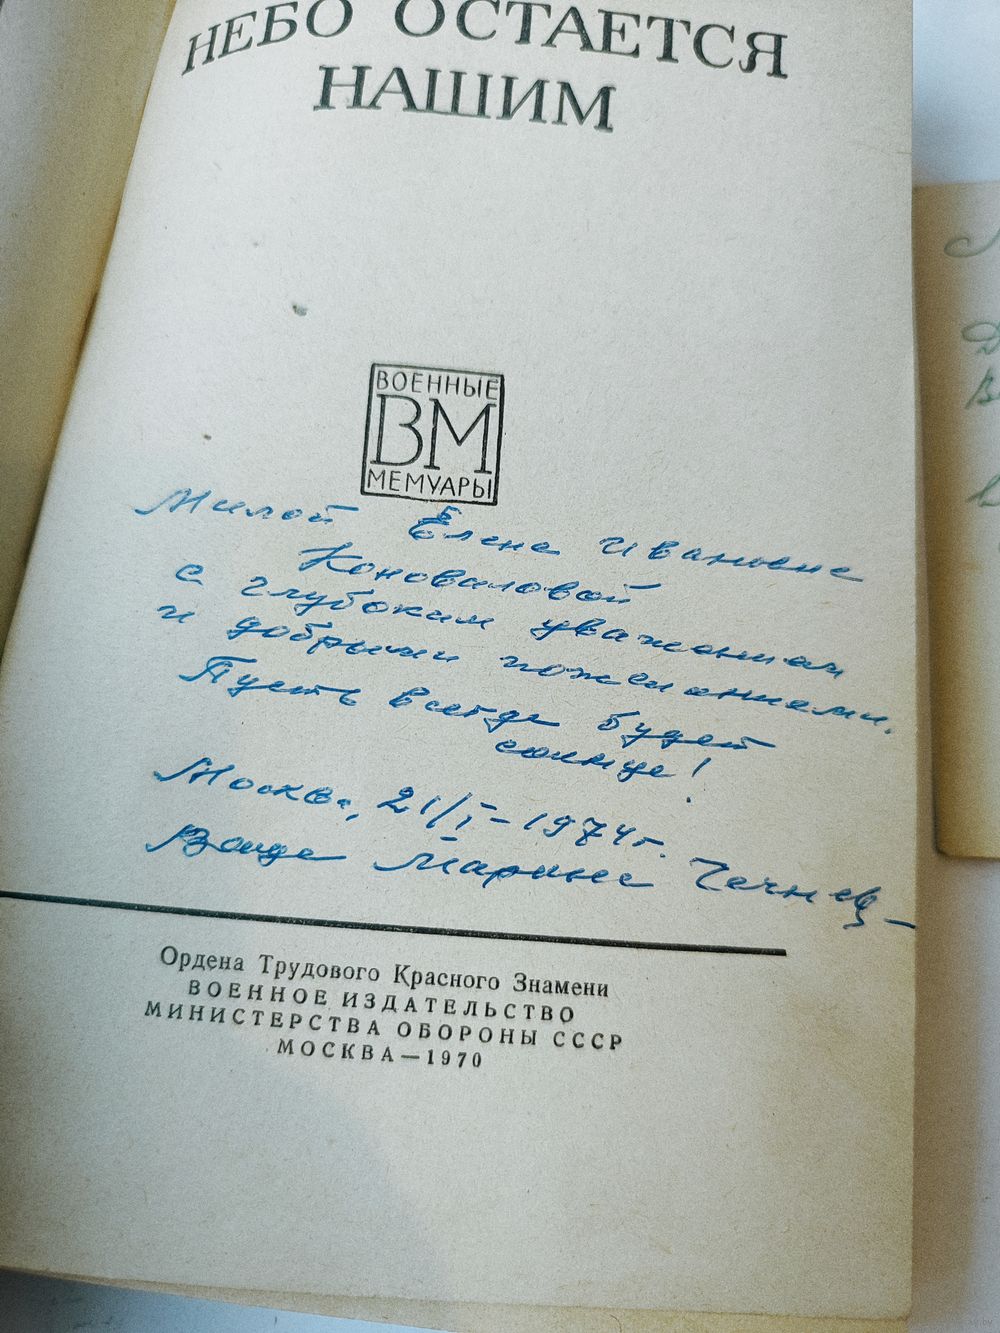 НЕБО ОСТАЕТСЯ
НАШИМ
ВОЕННЫЕ
ВМ
МЕМУАРЫ
Милой Елене Ивановне
Коноваловой
с глубоким уважением
и добрыми пожеланиями.
Пусть всегда будет
солнце!
Москва, 21/I-1974г.
Ваша Марина Чечнева
Ордена Трудового Красного Знамени
ВОЕННОЕ ИЗДАТЕЛЬСТВО
МИНИСТЕРСТВА ОБОРОНЫ СССР
МОСКВА—1970